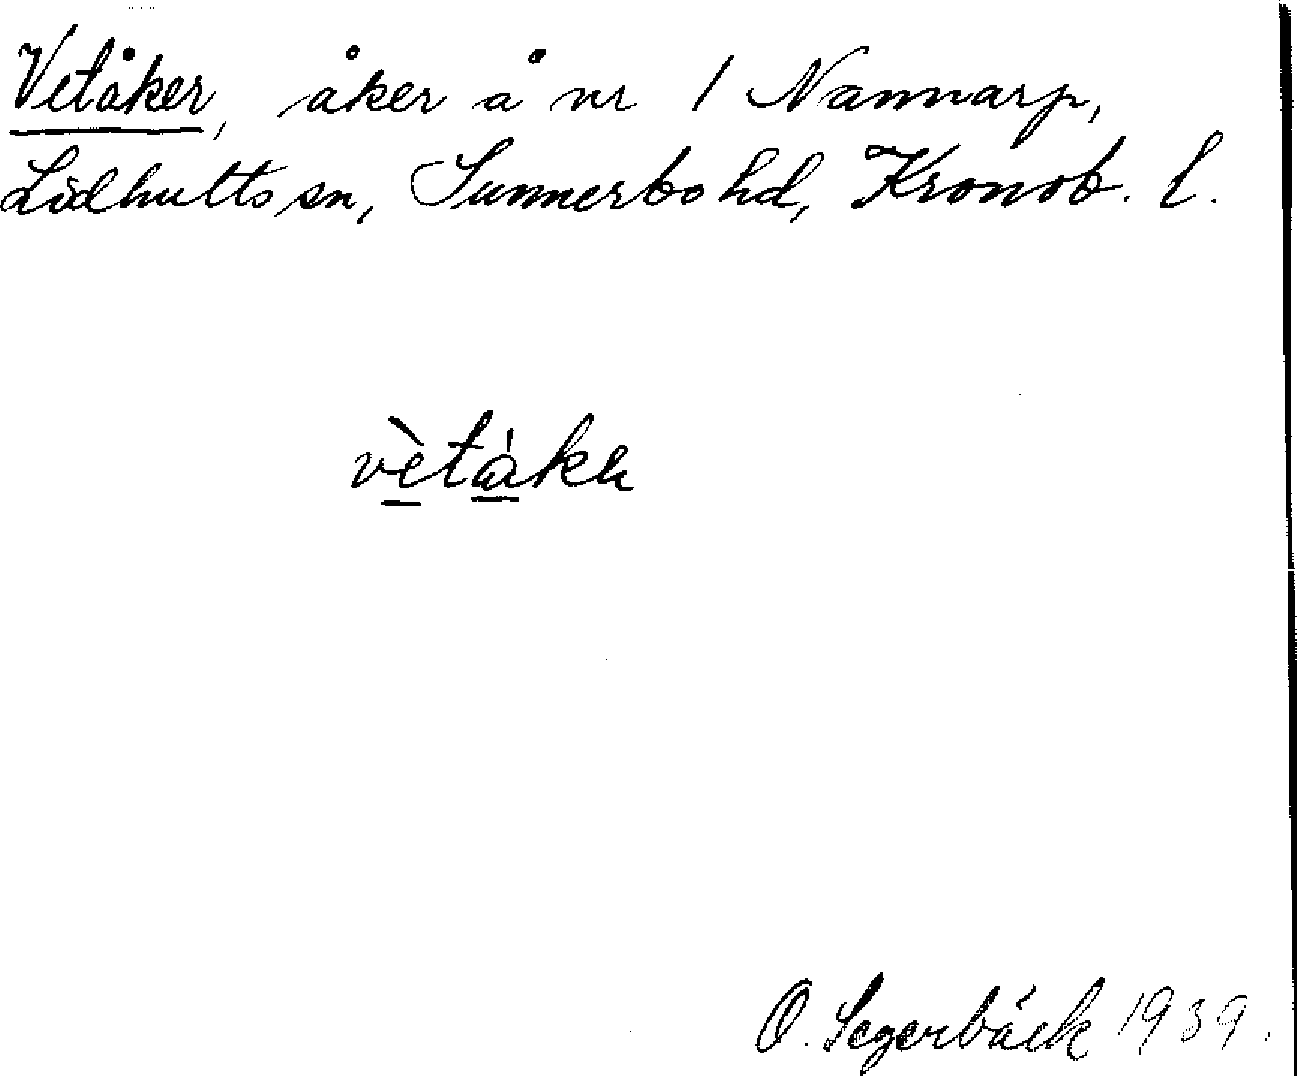 Vetåker, åker å nr 1 Nannarp,
Lidhults sn, Sunnerbo hd, Kronob. l.
vètákɐ
O. Segerbäck 1939.